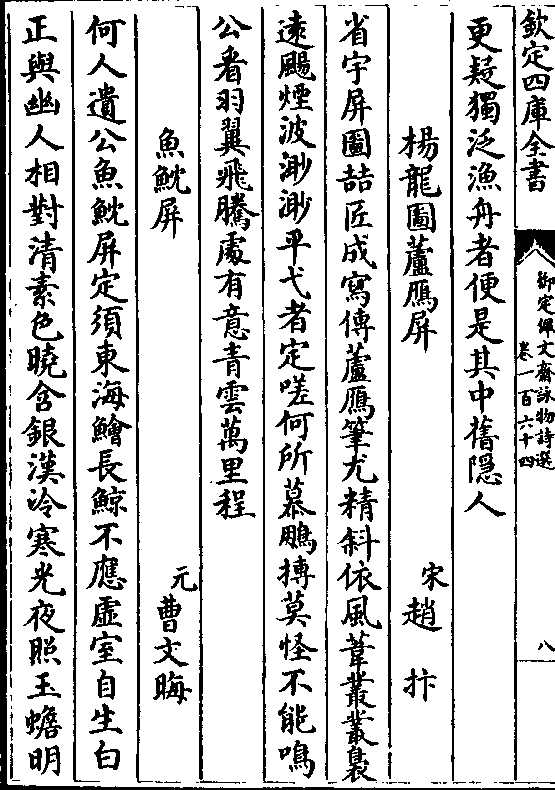 欽定四庫全書
御定佩文齋詠物詩選
卷一百六十四
八
更疑獨泛漁舟者便是其中舊隠人
楊龍圖蘆鴈屏
宋趙抃
省宇屏圖喆匠成寫傳蘆鴈筆尤精斜依風葦叢叢裊
遠颺煙波渺渺平弋者定嗟何所慕鵬摶莫怪不能鳴
公看羽翼飛騰處有意青雲萬里程
魚魫屏
元曹文晦
何人遺公魚魫屏定須東海鱠長鯨不應虚室自生白
正與幽人相對清素色曉含銀漢冷寒光夜照玉蟾明